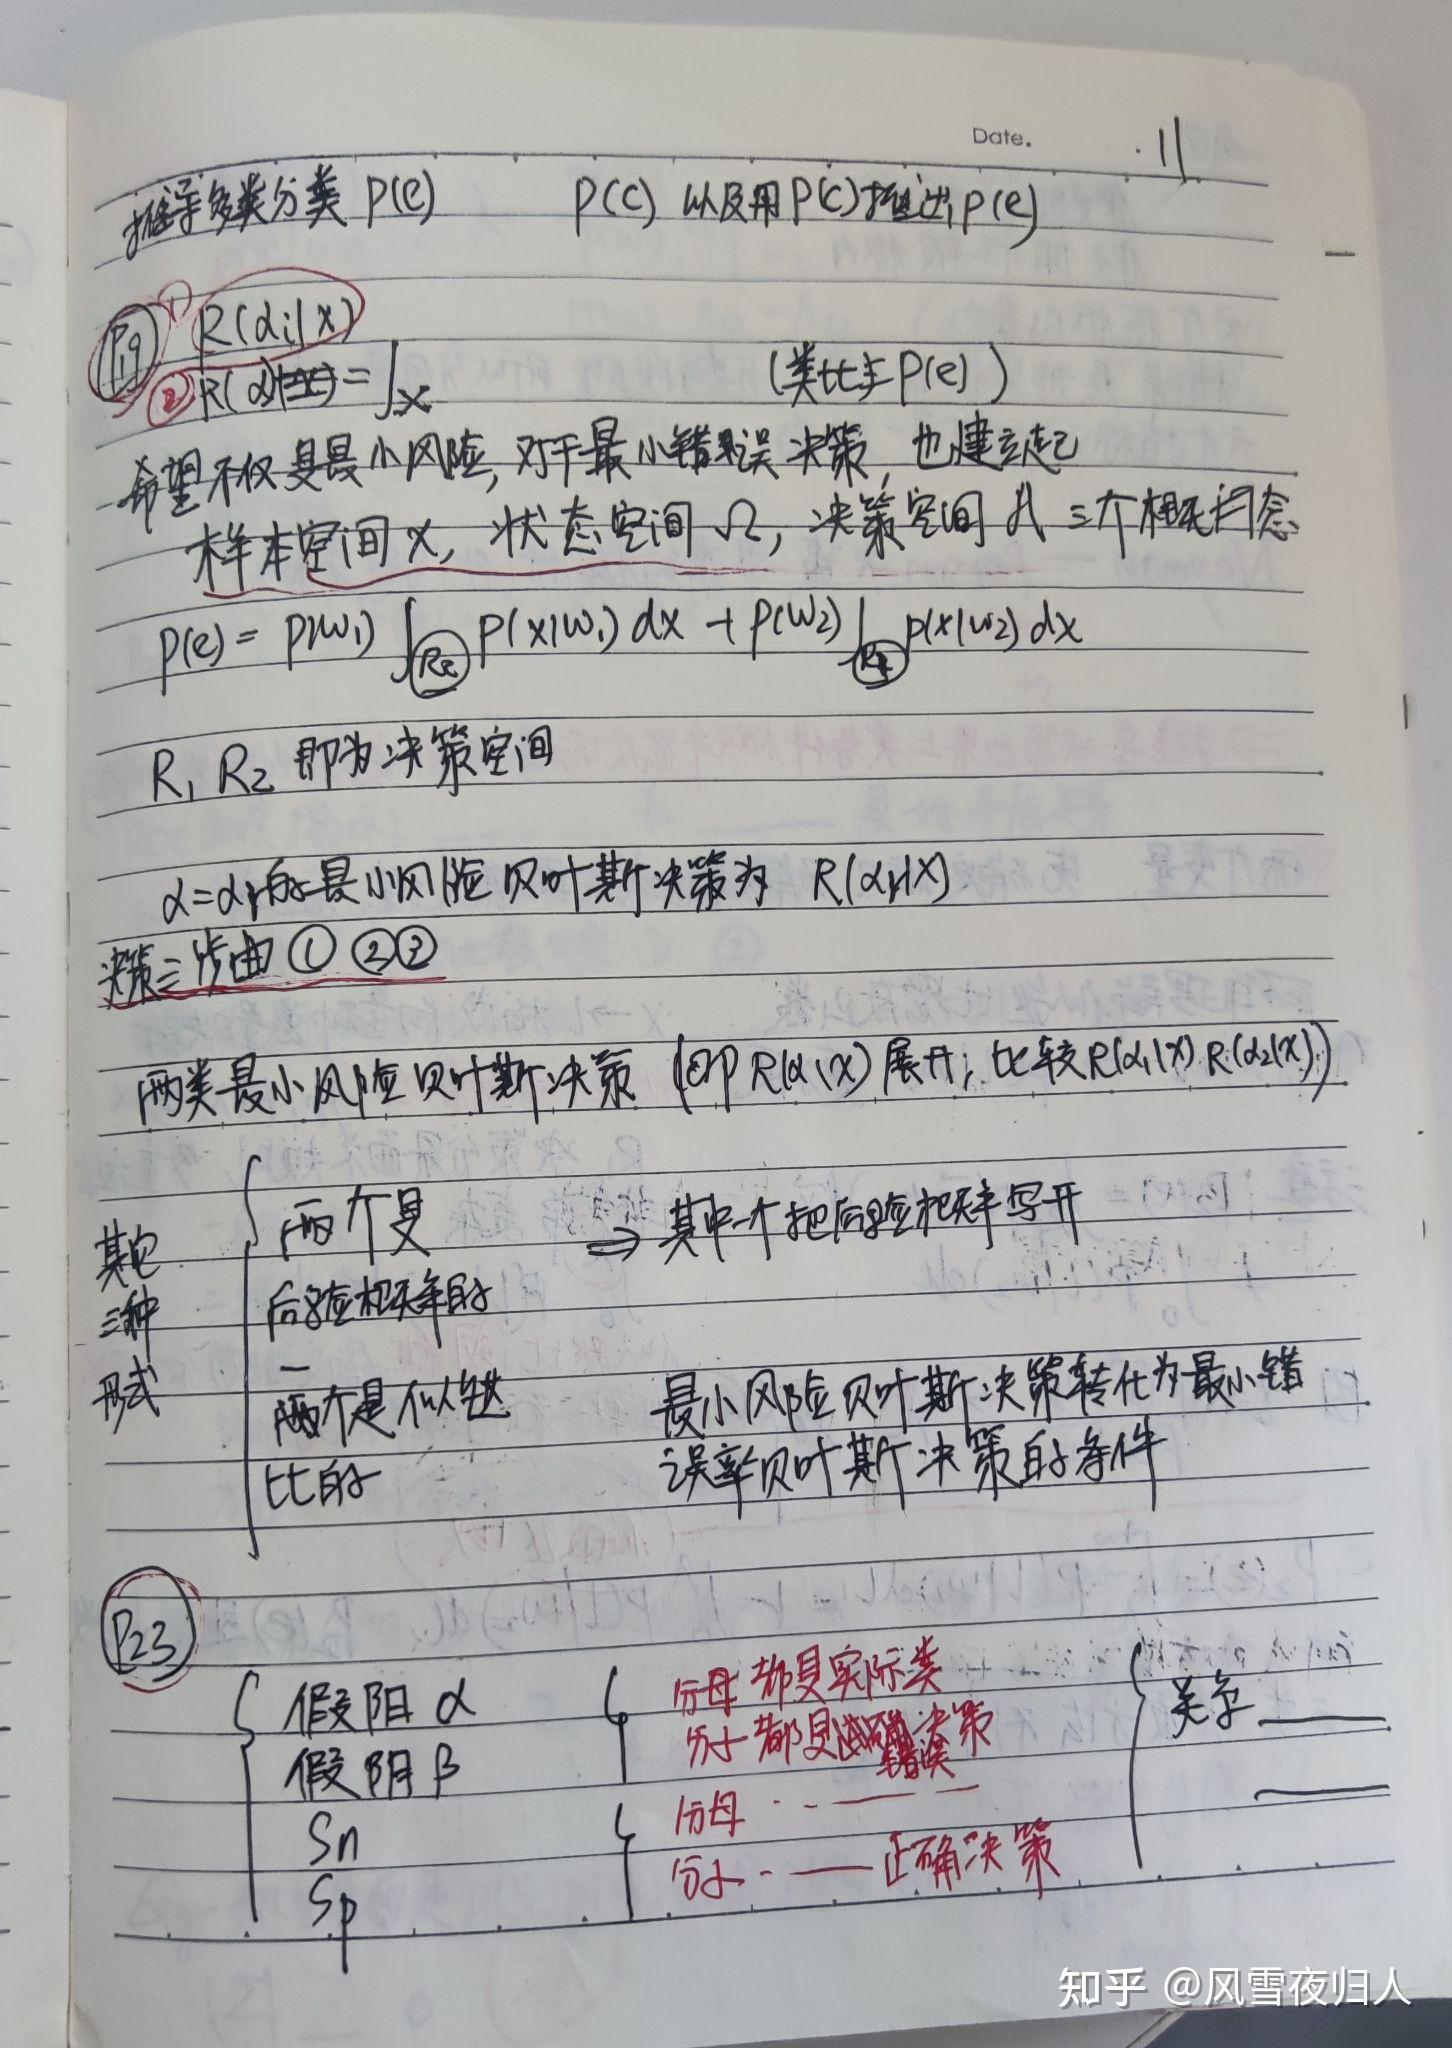 Date. 11
推导多类分类 P(e) P(c) 以及用P(c)推出P(e)
P19 ① R(αi|x)
② R(α) = ∫x (类比于P(e))
希望不仅是最小风险,对于最小错误决策,也建立起
样本空间 X, 状态空间 Ω, 决策空间 A 三个相关概念
P(e) = P(w₁) ∫R₂ P(x|w₁) dx + P(w₂) ∫R₁ P(x|w₂) dx
R₁ R₂ 即为决策空间
α=αk的最小风险贝叶斯决策为 R(αk|X)
决策三步曲 ① ② ③
两类最小风险贝叶斯决策 (即 R(αi|X) 展开; 比较R(α₁|X) R(α₂|X))
其它三种形式
两个是 ⇒ 其中一个把后验概率写开
后验概率的
—
两个是似然 最小风险贝叶斯决策转化为最小错
比的 误率贝叶斯决策的条件
P23
假阳 α 分母都是实际类 关系
假阴 β 分子都是错误决策
Sn 分母
Sp 分子 正确决策
知乎 @风雪夜归人